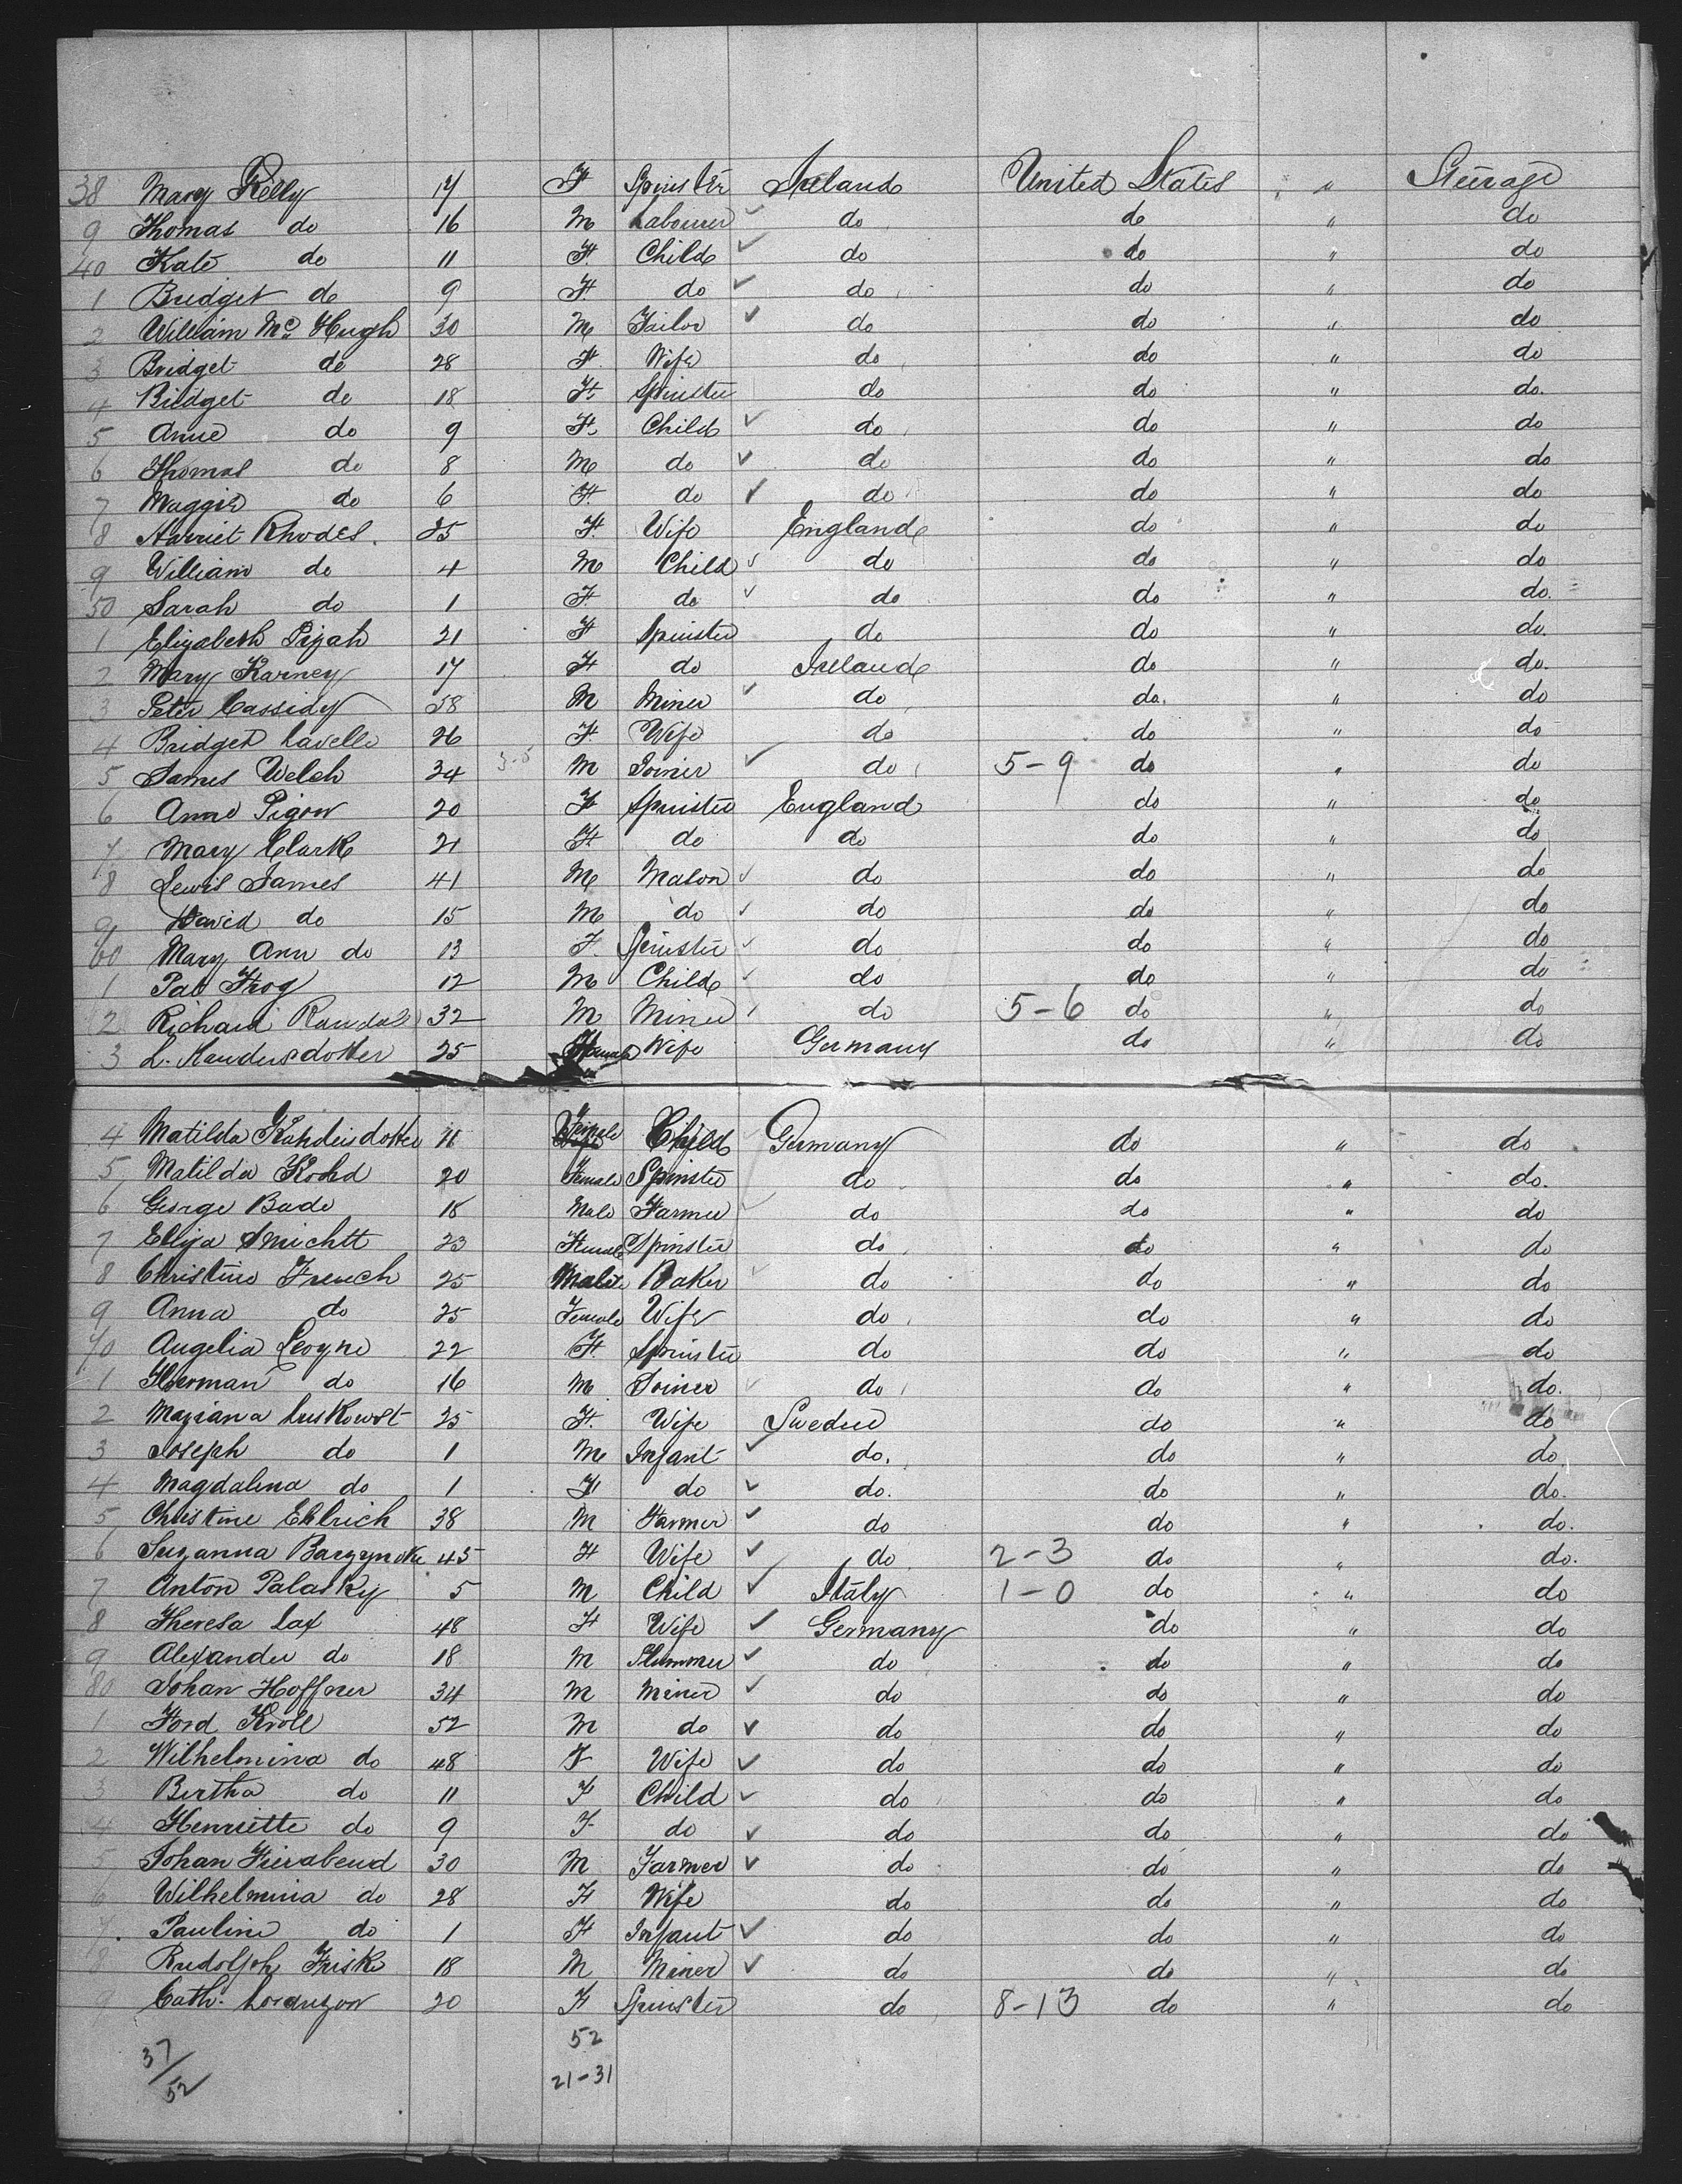 38 Mary Kelly 17 F Spinster Ireland United States " Steerage
9 Thomas do 16 M Labourer do do " do
40 Kate do 11 F. Child do do " do
1 Bridget do 9 F. do do do " do
2 William Mc Hugh 30 M Tailor do do " do
3 Bridget do 28 F. Wife do do " do
4 Bridget do 18 F. Spinster do do " do.
5 Anne do 9 F. Child do do " do
6 Thomas do 8 M do do do " do
7 Maggie do 6 F. do do do " do
8 Harriet Rhodes. 35 F. Wife England do " do
9 William do 4 M Child do do " do
50 Sarah do 1 F. do do do " do.
1 Elizabeth 21 F Spinster do do " do.
2 Mary Karney 17 F do Ireland do " do.
3 Peter Cassidy 38 M Miner do do. " do
4 Bridget Lavelle 26 F. Wife do do " do
5 James Welch 34 3-5 M Joiner do 5-9 do " do
6 Anne Pigow 20 F Spinster England do " do
7 Mary Clark 21 F. do do do " do
8 Lewis James 41 M Mason do do " do
9 David do 15 M do do do " do
60 Mary Ann do 13 F. Spinster do do " do
1 Pat Frog 12 M Child do do " do
2 Richard Randal 32 M Miner do 5-6 do " do
3 L. 25 Female Wife Germany do " do
4 Matilda 11 Female Child Germany do " do
5 Matilda 20 Female Spinster do do " do.
6 George Bade 18 Male Farmer do do " do
7 Eliza Smichtt 23 Female Spinster do do " do
8 Christine French 25 Male Baker do do " do
9 Anna do 25 Female Wife do do " do
70 Angelia 22 F. Spinster do do " do
1 Herman do 16 M Joiner do do " do.
2 Mariana 25 F. Wife Sweden do " do
3 Joseph do 1 M Infant do. do " do
4 Magdalena do 1 F do do. do " do.
5 Christine Ehlrich 38 M Farmer do do " do.
6 Suzanna 45 F Wife do 2-3 do " do.
7 Anton Palasky 5 M Child Italy 1-0 do " do
8 Theresa Lax 48 F Wife Germany do " do
9 Alexander do 18 M Plummer do do " do
80 Johan Hoffner 34 M Miner do do " do
1 Ford Kroll 52 M do do do " do
2 Wilhelmina do 48 F Wife do do " do
3 Bertha do 11 F Child do do " do
4 Henriette do 9 F do do do " do
5 Johan Fierabend 30 M Farmer do do " do
6 Wilhelmina do 28 F Wife do do " do
7. Pauline do 1 F Infant do do " do
8 Rudolph Friske 18 M Miner do do " do
9 Cath. 20 F Spinster do 8-13 do " do
37/52 52
21-31